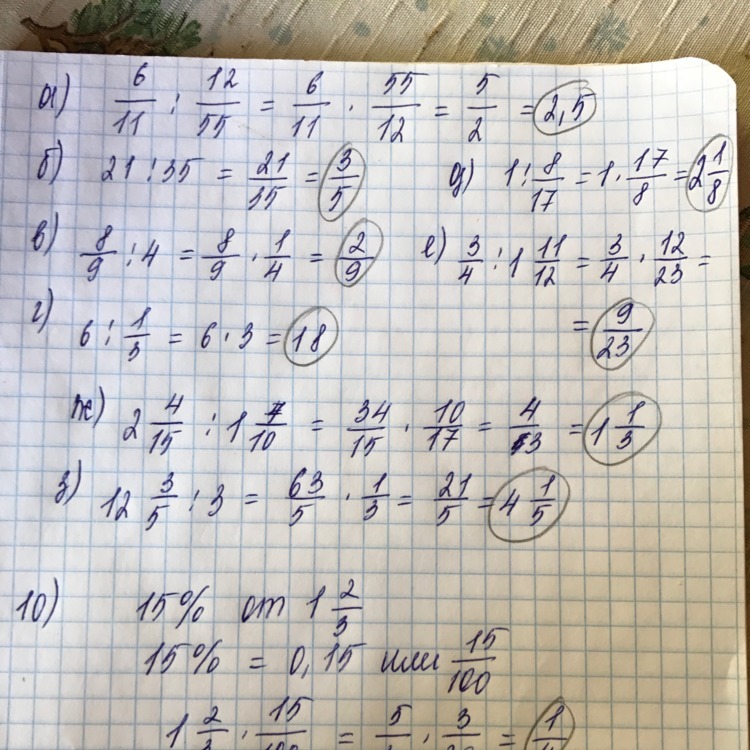 а) 6/11 : 12/55 = 6/11 · 55/12 = 5/2 = 2,5
б) 21 : 35 = 21/35 = 3/5
д) 1 : 8/17 = 1 · 17/8 = 2 1/8
в) 8/9 : 4 = 8/9 · 1/4 = 2/9
е) 3/4 : 1 11/12 = 3/4 · 12/23 =
= 9/23
г) 6 : 1/3 = 6 · 3 = 18
ж) 2 4/15 : 1 7/10 = 34/15 · 10/17 = 4/3 = 1 1/3
з) 12 3/5 : 3 = 63/5 · 1/3 = 21/5 = 4 1/5
10) 15% от 1 2/3
15% = 0,15 или 15/100
1 2/3 · 15/100 = 5/ · 3/ = 1/